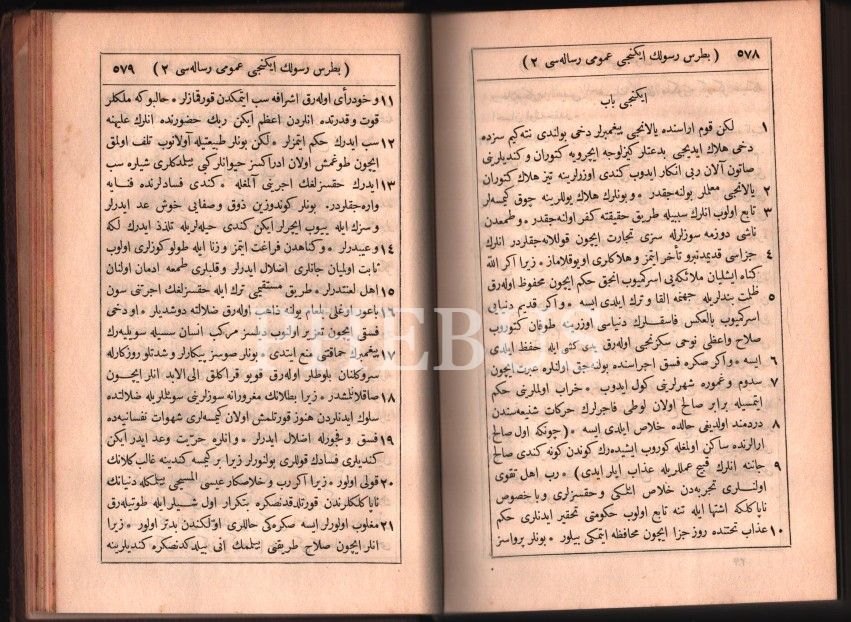 ٥٧٨ ( بطرس رسولك ایكنجی عمومی رساله سی ٢ )
ایكنجی باب
١ لكن قوم اراسنده یالانجی پیغمبرلر دخی بولندی نته كیم سزده
دخی هلاك ایدیجی بدعتلر كیزلوجه ایچرویه كتوران و كندیلرینی
صاتون آلان ربی انكار ایدوب كندی اوزرلرینه تیز هلاك كتوران
٢ یالانجی معلملر بولنه جقدر * و بونلرك هلاك یوللرینه چوق كیمسه لر
٣ تابع اولوب انلرك سببیله طریق حقیقته كفر اولنه جقدر * و طمعدن
ناشی دوزمه سوزلرله سزی تجارت ایچون قوللانه جقلردر انلرك
٤ جزاسی قدیمدنبرو تأخر ایتمز و هلاكلری اویوقلاماز * زیرا اكر الله
كناه ایشلیان ملائكه یی اسركیوب انجق حكم ایچون محفوظ اوله رق
٥ ظلمت بندلریله جهنمه القا و ترك ایلدی ایسه * واكر قدیم دنیایی
اسركیوب بالعكس فاسقلرك دنیاسی اوزرینه طوفان كتوروب
صلاح واعظی نوحی سكزنجی اوله رق یدی كشی ایله حفظ ایلدی
٦ ایسه * واكر صكره فسق اجراسنده بولنه جق اولنلره عبرت ایچون
٧ سدوم و غموره شهرلرینی كول ایدوب * خراب اولملرینی حكم
ایتمسیله برابر صالح اولان لوطی فاجرلرك حركات شنیعه سندن
٨ دردمند اولدیغی حالده خلاص ایلدی ایسه * ( چونكه اول صالح
ارالرنده ساكن اولمغله كوروب ایشیده رك كوندن كونه كندی صالح
٩ جاننه انلرك قبیح عمللریله عذاب ایلر ایدی ) * رب اهل تقوی
اولنلری تجربه دن خلاص ایتمكی و حقسزلری و باخصوص
ناپاكلكه اشتها ایله تنه تابع اولوب حكومتی تحقیر ایدنلری حكم
١٠ عذاب تحتنده روز جزا ایچون محافظه ایتمكی بیلور * بونلر پرواسز
( بطرس رسولك ایكنجی عمومی رساله سی ٢ ) ٥٧٩
١١ و خودرأی اوله رق اشرافه سب ایتمكدن قورقمازلر * حالبوكه ملكلر
قوت و قدرتده انلردن اعظم ایكن ربك حضورنده انلرك علیهنه
١٢ سب ایدرك حكم ایتمزلر * لكن بونلر طبیعتیله آولانوب تلف اولمق
ایچون طوغمش اولان ادراكسز حیوانلر كبی بیلمدكلری شیلره سب
١٣ ایدرك حقسزلغك اجرتنی آلمغله * كندی فسادلرنده فنایه
واره جقلردر. بونلر كوندوزین ذوق و صفایی خوش عد ایدرلر
و سزك ایله ییوب ایچرلر ایكن كندی حیله لریله تلذذ ایدرك لكه
١٤ و عیبدرلر * و كناهدن فراغت ایتمز و زنا ایله طولو كوزلری اولوب
ثابت اولمیان جانلری اضلال ایدرلر و قلبلری طمعه ادمان اولنان
١٥ اهل لعنتدرلر * طریق مستقیمی ترك ایله حقسزلغك اجرتنی سون
١٦ باعور اوغلی بلعام یولنه ذاهب اوله رق ضلالته دوشدیلر * او دخی
فسقی ایچون تعزیر اولنوب دلسز مركب انسان سسیله سویلیه رك
١٧ پیغمبرك حماقتنی منع ایتدی * بونلر صوسز بیكارلر و شدتلو روزكارله
سوركلنان بلوطلر اوله رق قویو قراكلق الی الابد انلر ایچون
١٨ صاقلانلمشدر * زیرا بطلانك مغرورانه سوزلرینی سویلدیلر ضلالتده
سلوك ایدنلردن هنوز قورتلمش اولان كیمسه لری شهوات نفسانیه ده
١٩ فسق و فجورله اضلال ایدرلر * و انلره حریت وعد ایدر ایكن
كندیلری فسادك قوللری بولنورلر زیرا بر كیمسه كندینه غالب كلانك
٢٠ قولی اولور * زیرا اكر رب و خلاصكار عیسی المسیحی بیلمكله دنیانك
ناپاكلكلرندن قورتلدقدنصكره بتكرار اول شیلر ایله طوتیله رق
٢١ مغلوب اولورلر ایسه صكره كی حاللری اوّلكندن بدتر اولور * زیرا
انلر ایچون صلاح طریقنی بیلمك انی بیلدكدنصكره كندیلرینه
PHEBUS